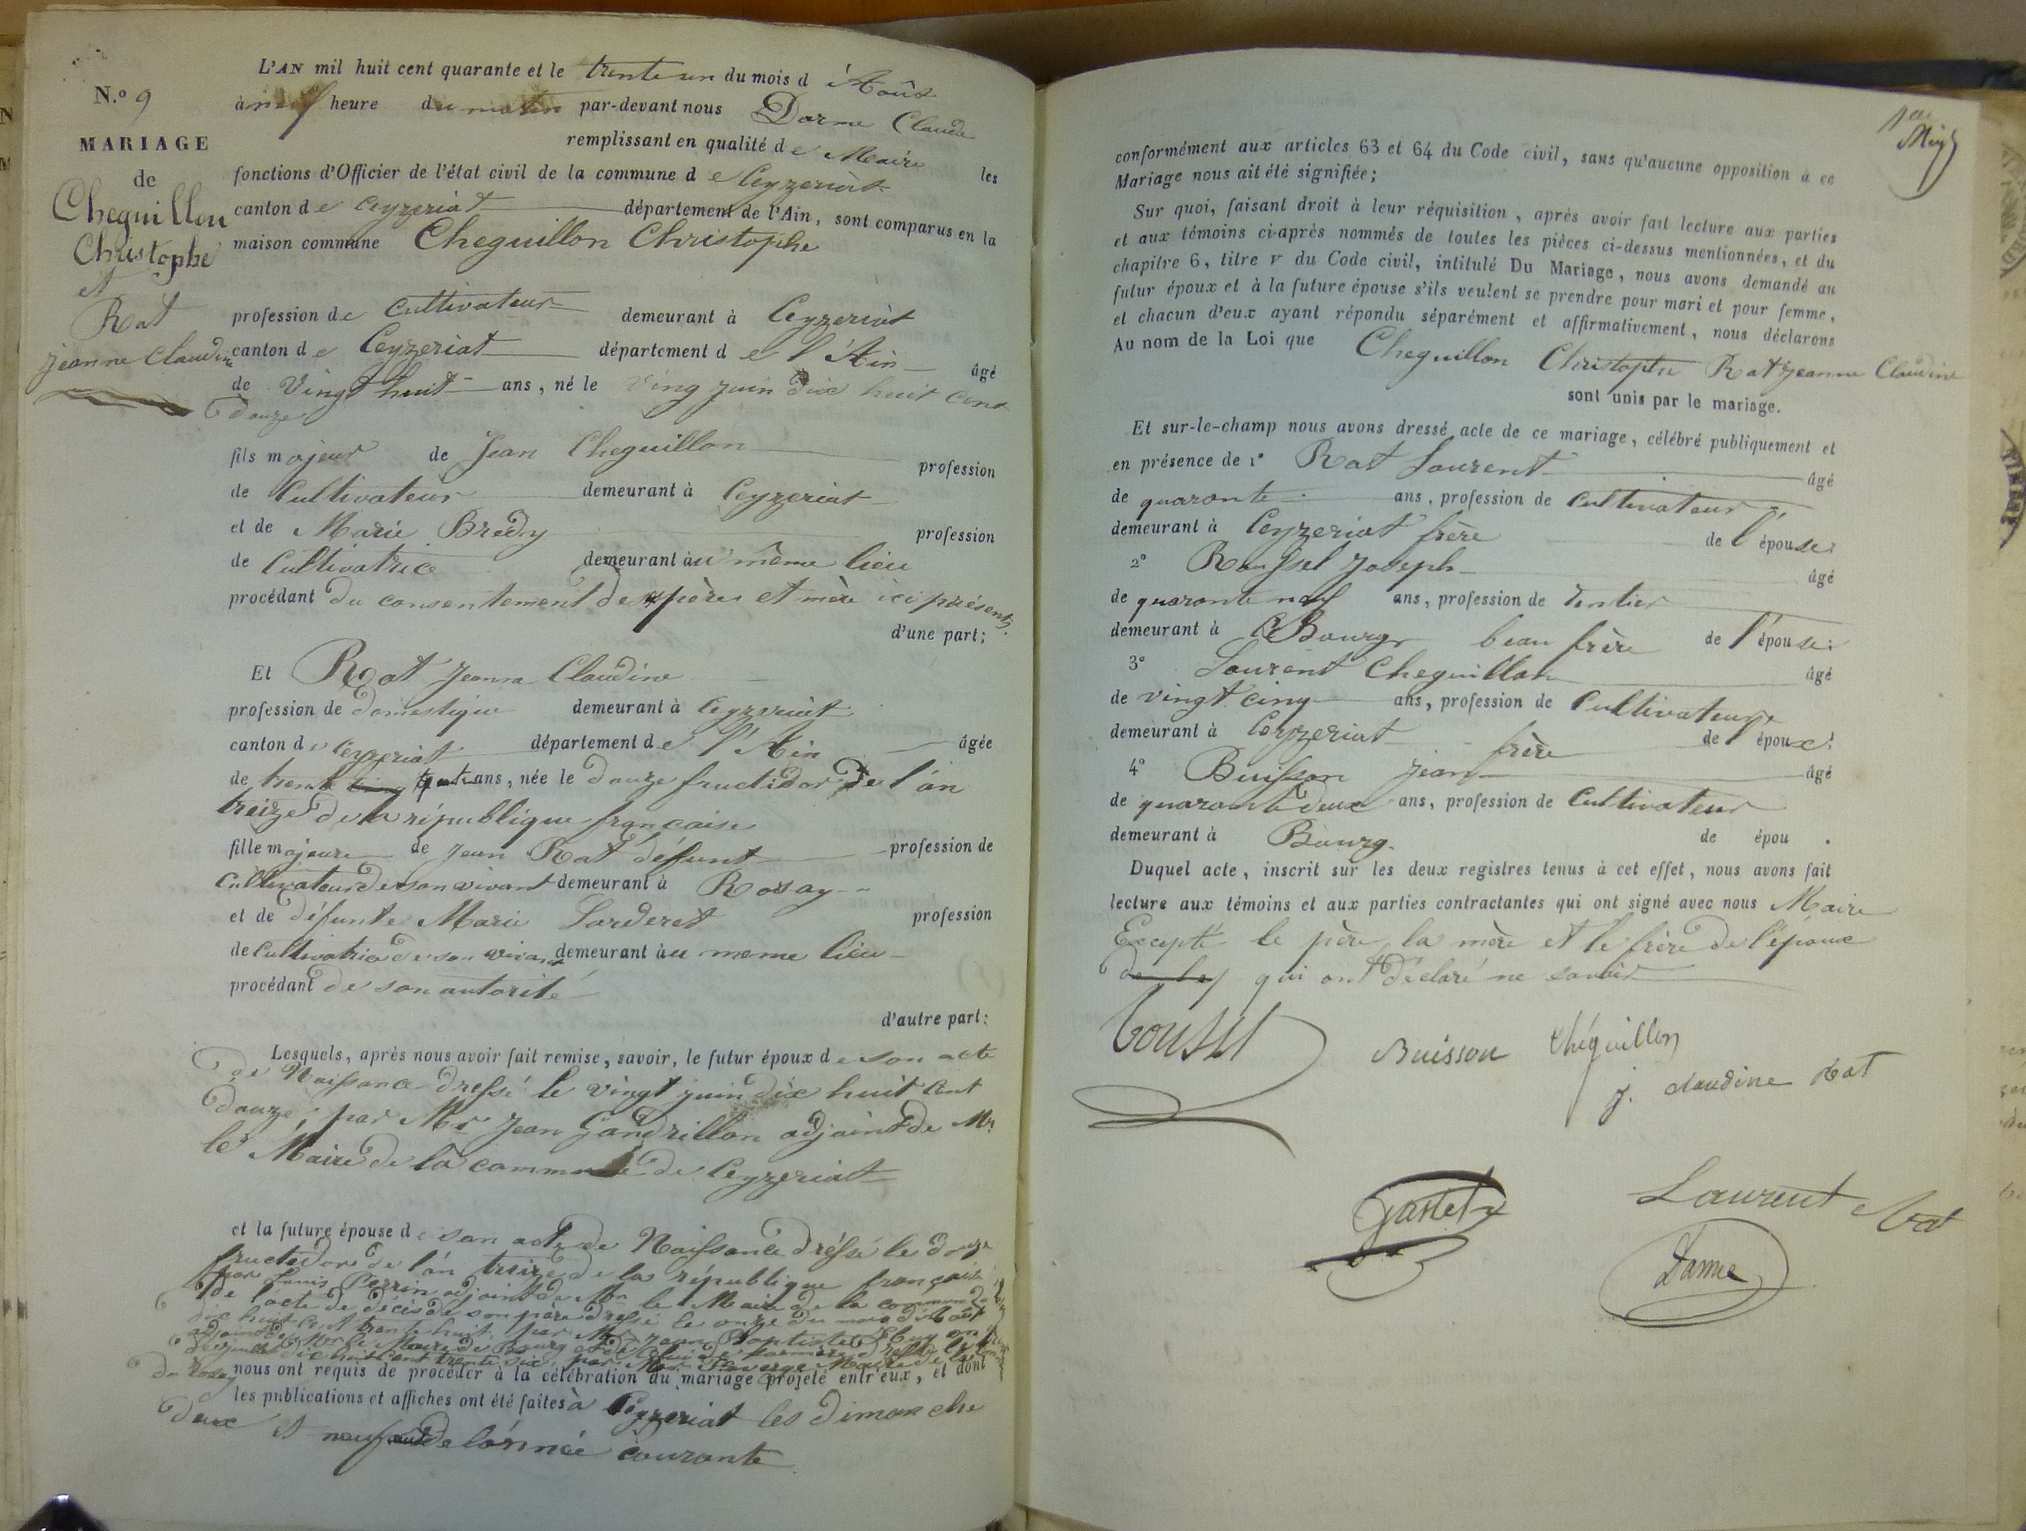 N.o 9
MARIAGE
de
Cheguillon
Christophe
et
Rat
jeanne Claudine
L'AN mil huit cent quarante et le trente un du mois d'Août
à neuf heure du matin par-devant nous Darme Claude
remplissant en qualité de Maire les
fonctions d'Officier de l'état civil de la commune de Ceyzériat
canton de Ceyzeriat département de l'Ain, sont comparus en la
maison commune Cheguillon Christophe
profession de Cultivateur demeurant à Ceyzeriat
canton de Ceyzeriat département de l'Ain âgé
de Vingt huit ans, né le Ving juin dix huit cent
douze
fils majeur de Jean Cheguillon profession
de Cultivateur demeurant à Ceyzeriat
et de Marie Bredy profession
de Cultivatrice demeurant au même lieu
procédant du consentement de père et mère ici présents.
d'une part;
Et Rat Jeanne Claudine
profession de domestique demeurant à Ceyzeriat
canton de Ceyzeriat département de l'Ain âgée
de trente ans, née le douze fructidor de l'an
treize de la république française
fille majeure de Jean Rat défunt profession de
Cultivateur de son vivant demeurant à Rosay
et de défunte Marie Larderet profession
de Cultivatrice de son vivant demeurant au meme lieu
procédant de son autorité
d'autre part:
Lesquels, après nous avoir fait remise, savoir, le futur époux de son acte
de Naissance dressé le vingt juin dix huit cent
douze, par Mr Jean Gandrillon adjoint de Mr
le Maire de la commune de Ceyzeriat
et la future épouse de son acte de Naissance dréssé le douze
fructidor de l'an treize de la république française
par Louis Perrin adjoint de Mr le Maire de la commune de
de l'acte de décès de son père dressé le onze du mois d'Août
dix huit cent trente huit, par Mr Jean Baptiste
adjoint de Mr le Maire de Bourg et de celui de sa mère dressé le
de juillet dix huit cent trente six, par Mr Maire de la
de Rosay nous ont requis de procéder à la célébration du mariage projeté entr'eux, et dont
les publications et affiches ont été faites à Ceyzeriat les dimanche
deux et neuf août de l'année courante
conformément aux articles 63 et 64 du Code civil, sans qu'aucune opposition à ce
Mariage nous ait été signifiée;
Sur quoi, faisant droit à leur réquisition, après avoir fait lecture aux parties
et aux témoins ci-après nommés de toutes les pièces ci-dessus mentionnées, et du
chapitre 6, titre v du Code civil, intitulé Du Mariage, nous avons demandé au
futur époux et à la future épouse s'ils veulent se prendre pour mari et pour femme,
et chacun d'eux ayant répondu séparément et affirmativement, nous déclarons
Au nom de la Loi que Cheguillon Christophe Rat Jeanne Claudine
sont unis par le mariage.
Et sur-le-champ nous avons dressé acte de ce mariage, célébré publiquement et
en présence de 1° Rat Laurent âgé
de quarante ans, profession de Cultivateur
demeurant à Ceyzeriat frère de l'épouse;
2° Roussel Joseph âgé
de quarante neuf ans, profession de rentier
demeurant à Bourg beau frère de l'épouse;
3° Laurent Cheguillon âgé
de vingt cinq ans, profession de Cultivateur
demeurant à Ceyzeriat frère de époux;
4° Buisson Jean âgé
de quarante deux ans, profession de Cultivateur
demeurant à Bourg. de épou .
Duquel acte, inscrit sur les deux registres tenus à cet effet, nous avons fait
lecture aux témoins et aux parties contractantes qui ont signé avec nous Maire
Excepté le père, la mère et le frère de l'époux
qui ont déclaré ne savoir
Buisson Chéguillon
j. claudine Rat
Laurent Rat
Darme